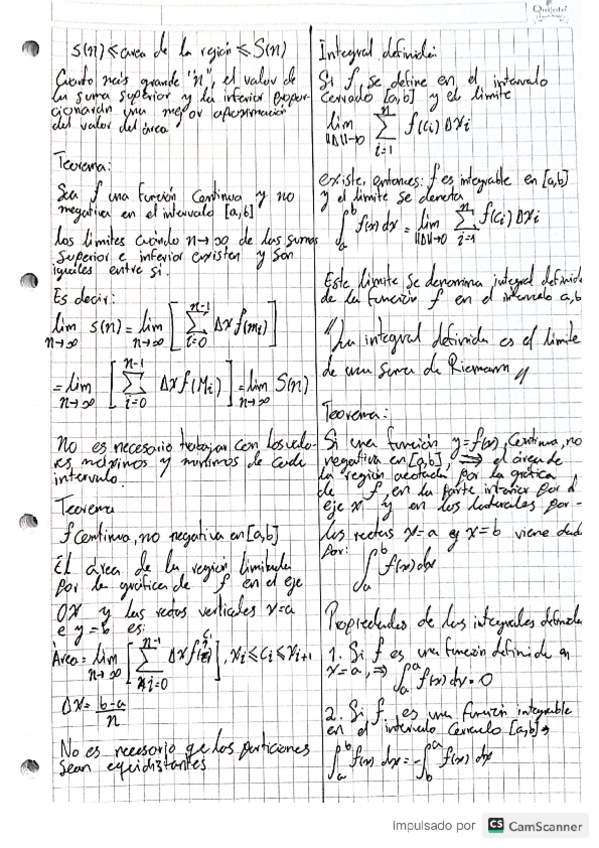 s(n) ≤ area de la región ≤ S(n)
Cuanto más grande "n", el valor de
la suma superior y la inferior propor-
cionarán una mejor aproximación
del valor del área
Teorema:
Sea f una función continua y no
negativa en el intervalo [a,b]
los limites cuando n→∞ de las sumas
superior e inferior existen y son
iguales entre si.
Es decir:
lim n→∞ s(n) = lim n→∞ [ ∑ i=0 n-1 Δx f(mi) ]
= lim n→∞ [ ∑ i=0 n-1 Δx f(Mi) ] = lim n→∞ S(n)
No es necesario trabajar con los valo-
res máximos y mínimos de cada
intervalo.
Teorema
f continua, no negativa en [a,b]
El área de la región limitada
por la gráfica de f en el eje
OX y las rectas verticales x=a
e y=b es:
Área = lim n→∞ [ ∑ i=0 n-1 Δx f(ci) ], xi ≤ ci ≤ xi+1
Δx = b-a / n
No es necesario que las particiones
sean equidistantes
Integral definida:
Si f se define en el intervalo
cerrado [a,b] y el límite
lim ||Δ||→0 ∑ i=1 n f(ci) Δxi
existe, entonces: f es integrable en [a,b]
y el limite se denota
∫ a b f(x) dx = lim ||Δ||→0 ∑ i=1 n f(ci) Δxi
Este límite se denomina integral definida
de la función f en el intervalo a,b
"La integral definida es el límite
de una suma de Riemann"
Teorema:
Si una función y=f(x), continua, no
negativa en [a,b], ⇒ el área de
la región acotada por la gráfica
de f, en la parte inferior por el
eje x y en los laterales por
las rectas x=a y x=b viene dada
por: ∫ a b f(x) dx
Propiedades de las integrales definidas
1. Si f es una función definida en
x=a, ⇒ ∫ a a f(x) dx = 0
2. Si f. es una función integrable
en el intervalo cerrado [a,b] ⇒
∫ a b f(x) dx = - ∫ b a f(x) dx
Impulsado por CS CamScanner